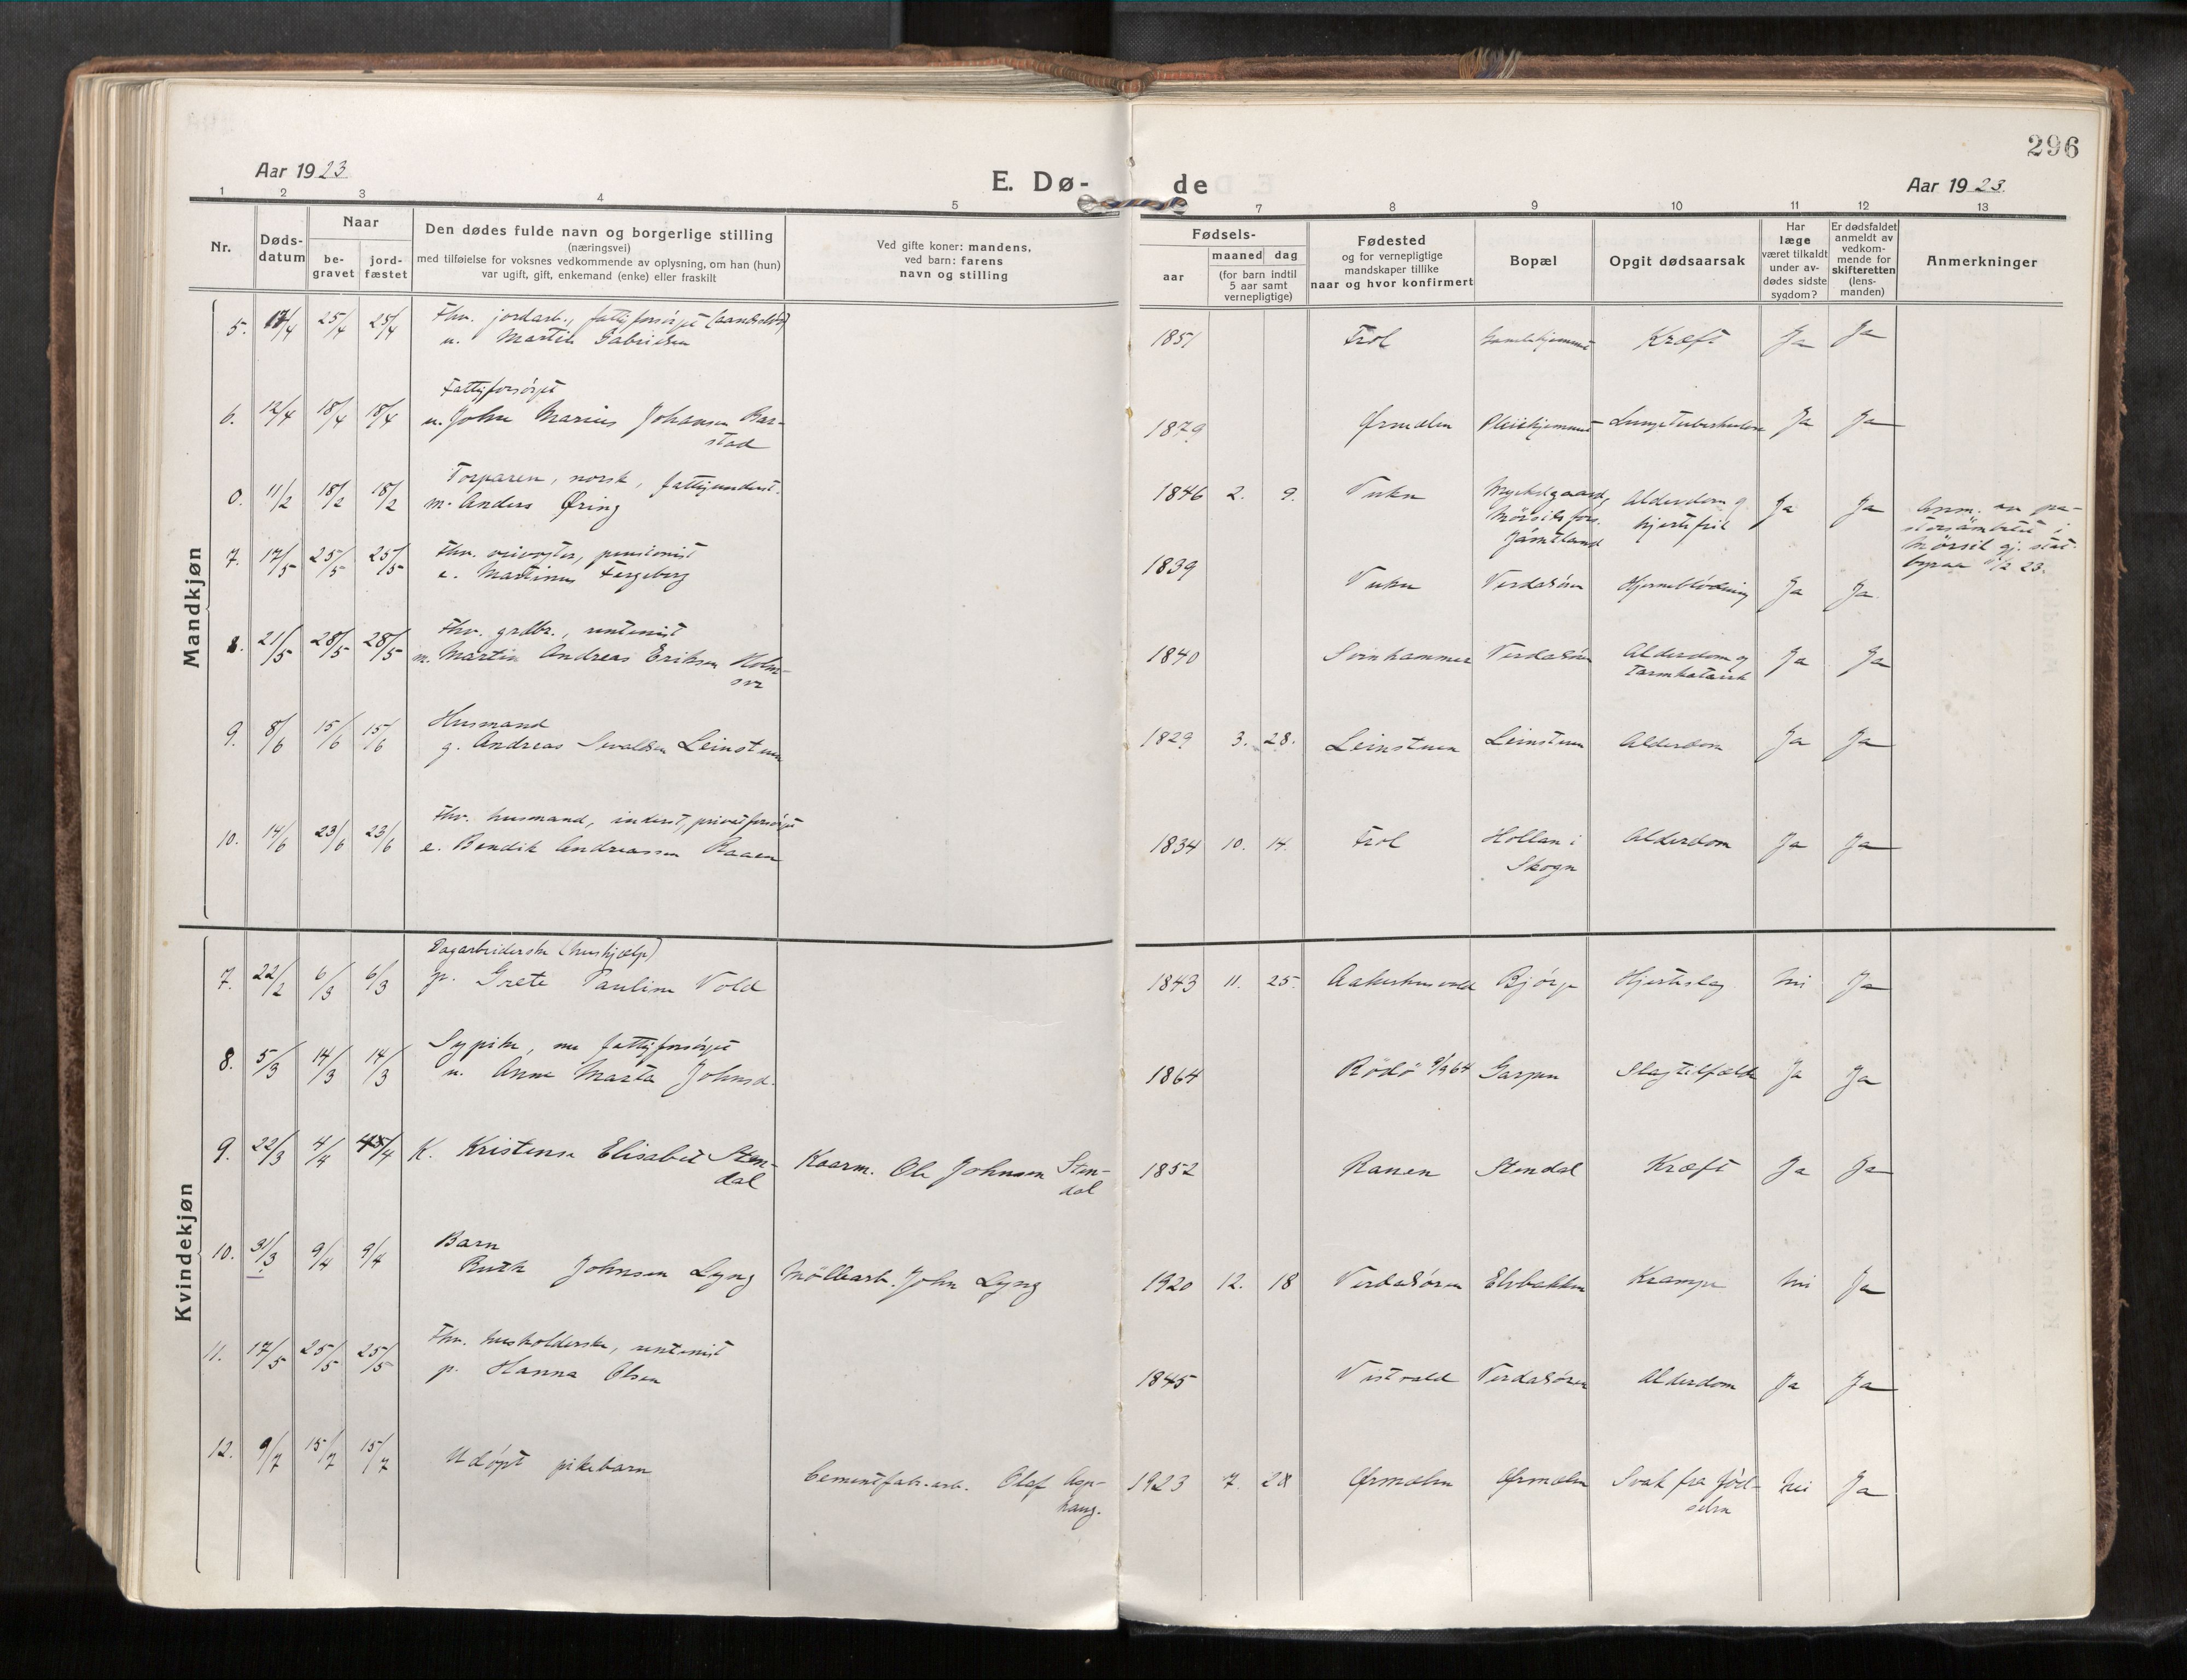 296
Aar 1923
E. Dø-
de
Aar 1923.
1 2 3 4 5 7 8 9 10 11 12 13
Nr.
Døds-
datum
Naar
be-
gravet
jord-
fæstet
Den dødes fulde navn og borgerlige stilling
(næringsvei)
med tilføielse for voksnes vedkommende av oplysning, om han (hun)
var ugift, gift, enkemand (enke) eller fraskilt
Ved gifte koner: mandens,
ved barn: farens
navn og stilling
Fødsels-
aar
maaned dag
(for barn indtil
5 aar samt
vernepligtige)
Fødested
og for vernepligtige
mandskaper tillike
naar og hvor konfirmert
Bopæl
Opgit dødsaarsak
Har
læge
været tilkaldt
under av-
dødes sidste
sygdom?
Er dødsfaldet
anmeldt av
vedkom-
mende for
skifteretten
(lens-
manden)
Anmerkninger
Mandkjøn
5. 17/4 25/4 25/4 Fhv. jordarb., fattigforsørget (aandssløv)
u. Martin Gabrielsen
1851 Frol Gamlehjemmet Kræft Ja Ja
Fattigforsørget
6. 12/4 18/4 18/4 u. John Marius Johansen Bar-
stad
1879 Ørmelen Pleiehjemmet Lungetuberkulose Ja Ja
Torparen, norsk, fattigunderst.
0. 11/2 18/2 18/2 m. Anders Øring
1846 2. 9. Vuku Myckelgaard,
Mörsils fors.
Jämtland
Alderdom og
hjertefeil
Ja Ja
Anm. av pa-
storsämbetet i
Mörsil gj. stat.
byraa 23.
7. 17/5 25/5 25/5 Fhv. veivogter, pensionist
e. Martinus Fergeberg
1839 Vuku Verdalsøren Hjerneblødning Ja Ja
8. 21/5 28/5 28/5 Fhv. grdbr., rentenist
m. Martin Andreas Eriksen Holm-
svr
1840 Svinhammer Verdalsøren Alderdom og
tarmkatarrh
Ja Ja
9. 8/6 15/6 15/6 Husmand
g. Andreas Sevaldsen Leinstuen
1829 3. 28. Leinstuen Leinstuen Alderdom Ja Ja
10. 14/6 23/6 23/6 Fhv. husmand, inderst, privatforsørget
e. Bendik Andreassen Raaen
1834 10. 14. Frol Hollan i
Skogn
Alderdom Ja Ja
Kvindekjøn
Dagarbeiderske (hushjælp)
7. 22/2 6/3 6/3 p. Grete Pauline Vold
1843 11. 25. Aakerhusvald Bjørge Hjerteslag Nei Ja
8. 5/3 14/3 14/3 Sypike, nu fattigforsørget
u. Anna Marta Johnsd.
1864 Rödö 9/9 64 Garpen Slagtilfælde Ja Ja
9. 22/3 4/4 4/4 K. Kristense Elisabet Sten-
dal
Kaarm. Ole Johnsen Sten-
dal
1852 Ranen Stendal Kræft Ja Ja
10. 31/3 9/4 9/4 Barn
Ruth Johnsen Lyng
Möllearb. John Lyng
1920 12. 18 Verdalsøren Elvbakken Krampe Nei Ja
11. 17/5 25/5 25/5 Fhv. husholderske, rentenist
p. Hanna Olsen
1845 Vistvald Verdalsøren Alderdom Ja Ja
12. 9/7 15/7 15/7 Udöpt pikebarn
Cementfabr.arb. Olaf Asp-
haug.
1923 7. 28 Ørmelen Ørmelen Svak fra fød-
selen
Nei Ja